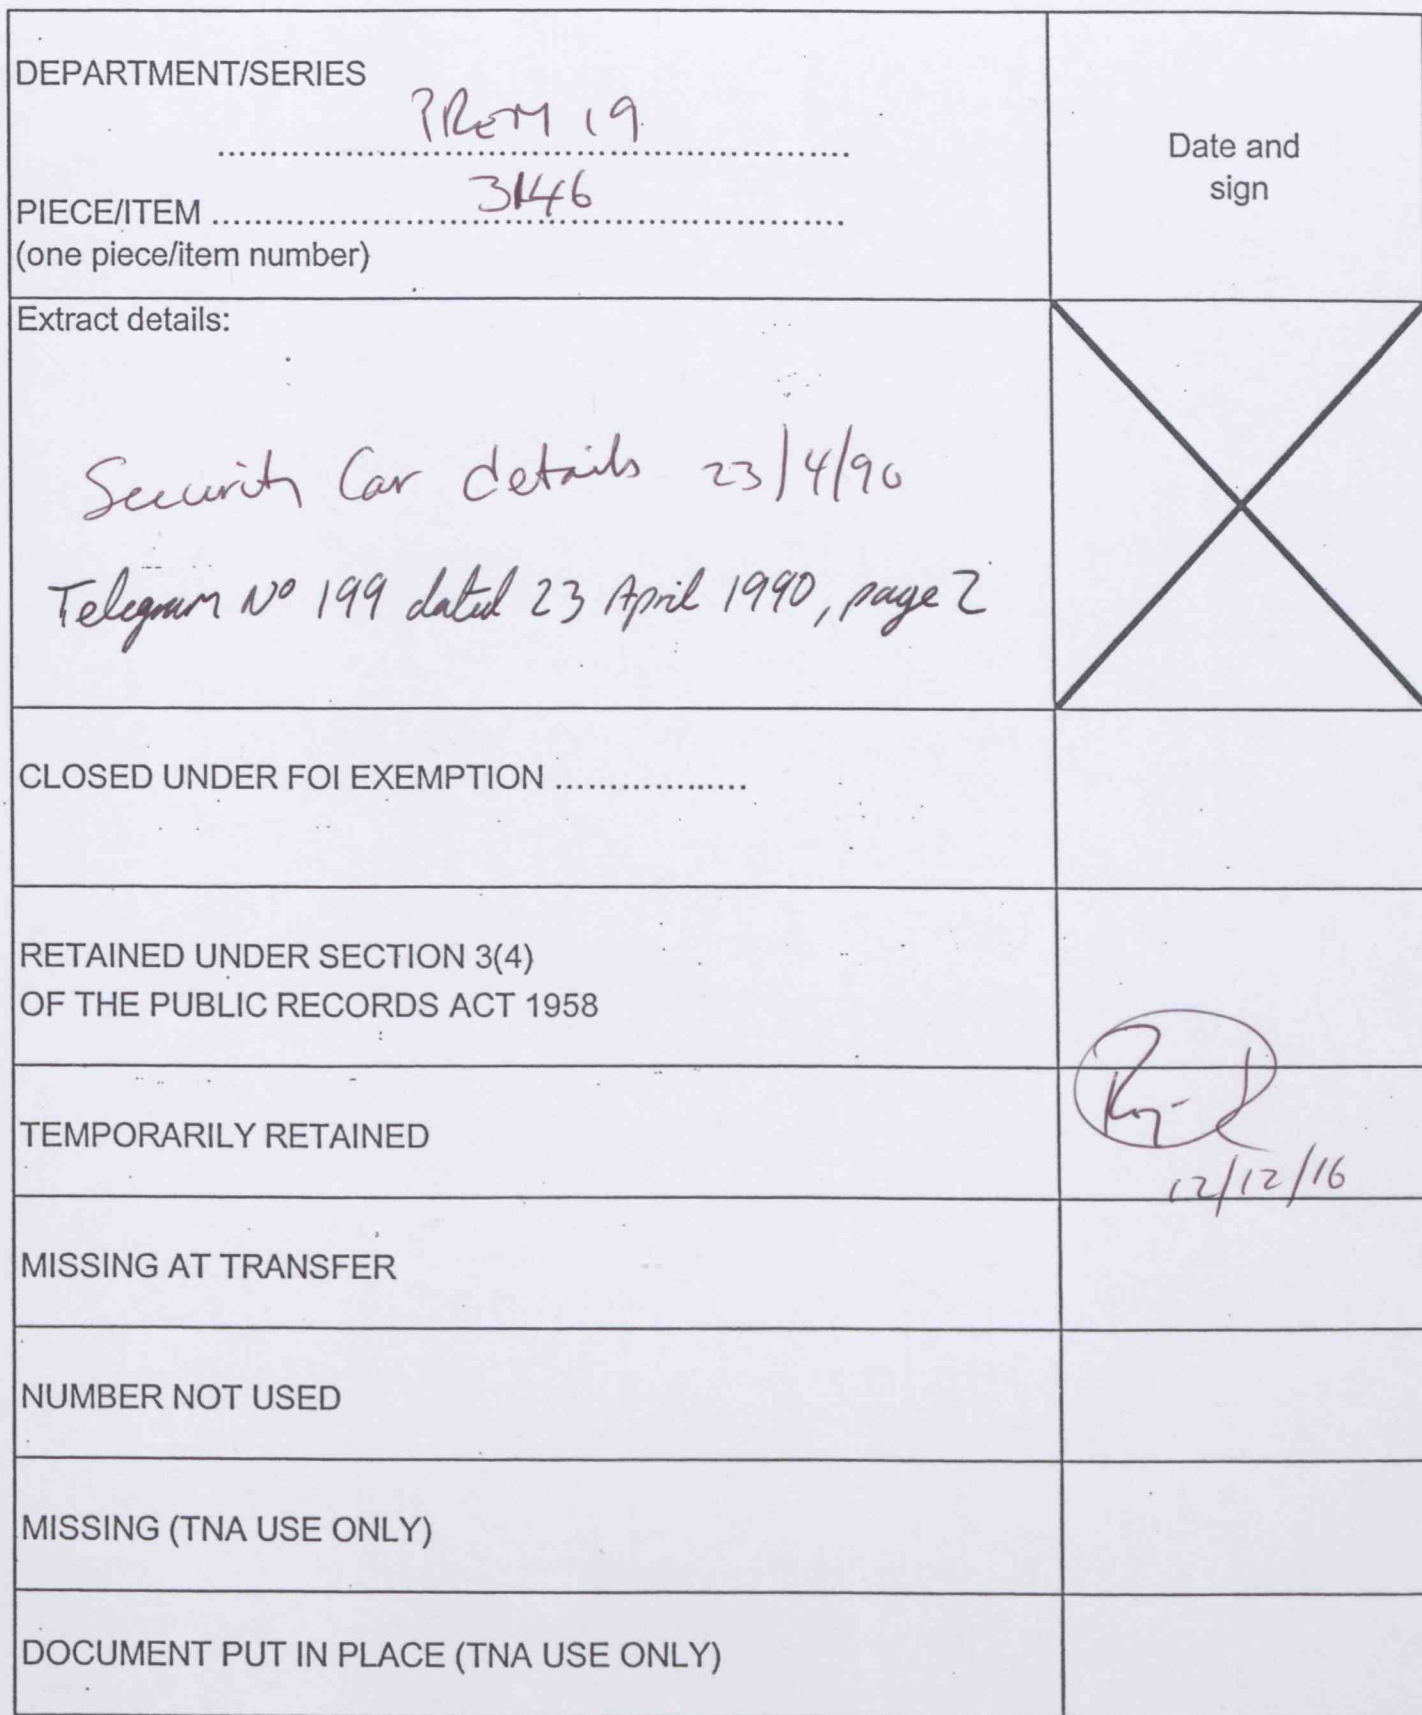 DEPARTMENT/SERIES
PREM 19
Date and
sign
PIECE/ITEM
3146
(one piece/item number)
Extract details:
Security Car details 23/4/90
Telegram Nº 199 dated 23 April 1990, page 2
CLOSED UNDER FOI EXEMPTION ....................
RETAINED UNDER SECTION 3(4)
OF THE PUBLIC RECORDS ACT 1958
TEMPORARILY RETAINED
12/12/16
MISSING AT TRANSFER
NUMBER NOT USED
MISSING (TNA USE ONLY)
DOCUMENT PUT IN PLACE (TNA USE ONLY)